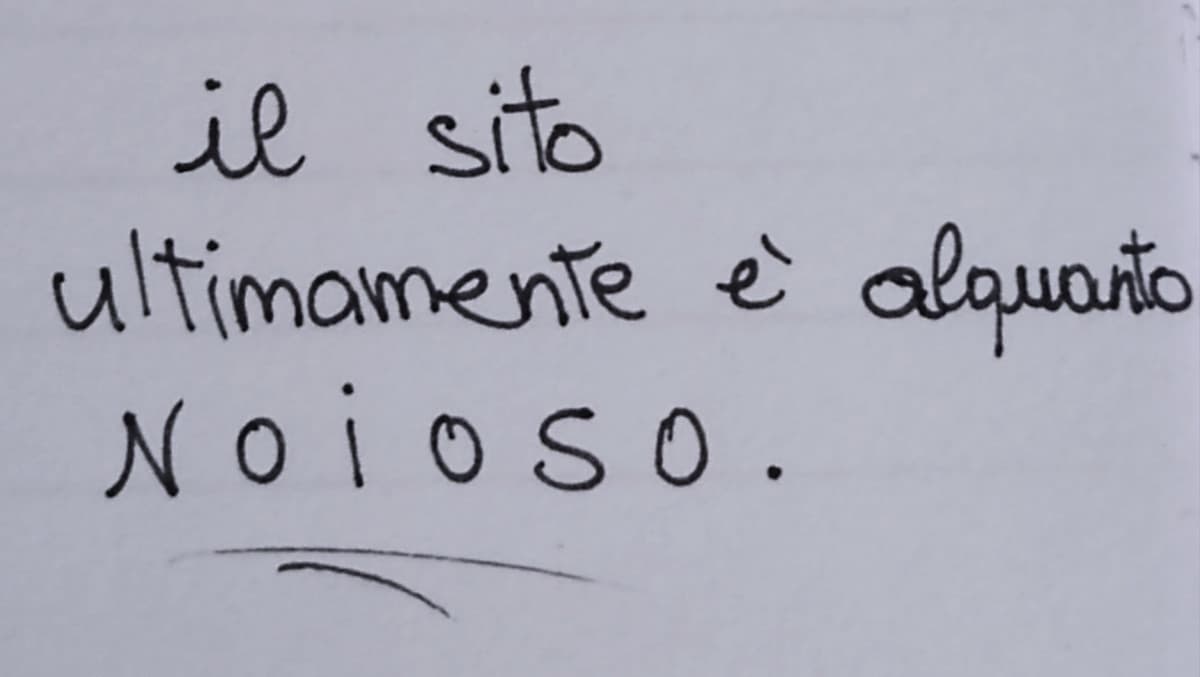 il sito
ultimamente è alquanto
NOiOSO.